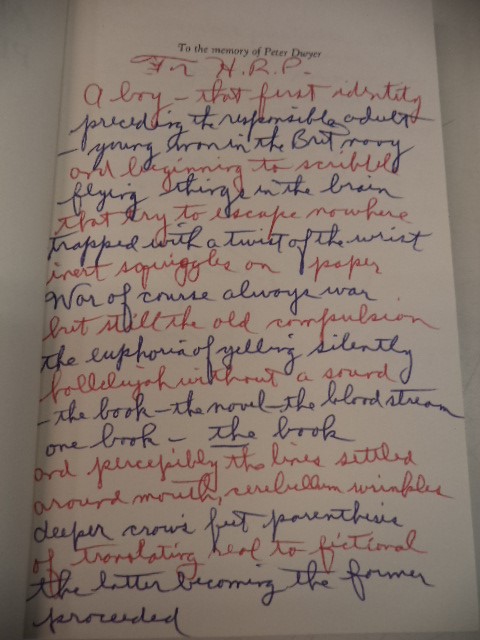 To the memory of Peter Dwyer
For H.R.P.
A boy - that first identity
preceding the responsible adult
- young man in the Brit navy
and beginning to scribble
flying things in the brain
that try to escape nowhere
trapped with a twist of the wrist
inert squiggles on paper
War of course always war
but still the old compulsion
the euphoria of yelling silently
hallelujah without a sound
- the book - the novel - the blood stream
one book - the book
and percepibly the lines settled
around mouth, cerebellum wrinkles
deeper crow's feet parenthesis
of translating real to fictional
the latter becoming the former
proceeded